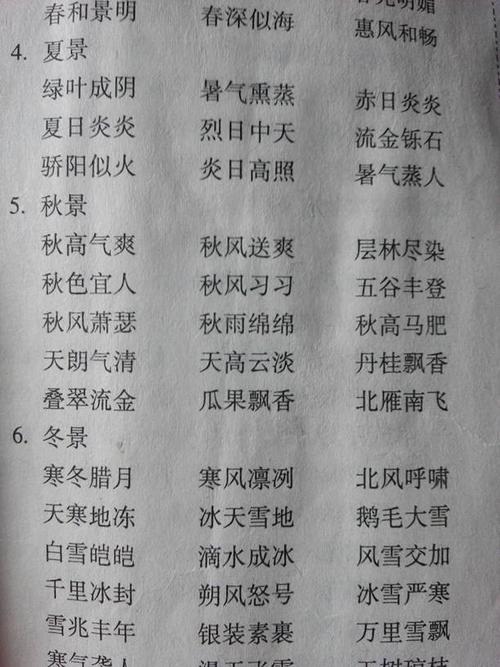 春和景明 春深似海 惠风和畅
4. 夏景
绿叶成阴 暑气熏蒸 赤日炎炎
夏日炎炎 烈日中天 流金铄石
骄阳似火 炎日高照 暑气蒸人
5. 秋景
秋高气爽 秋风送爽 层林尽染
秋色宜人 秋风习习 五谷丰登
秋风萧瑟 秋雨绵绵 秋高马肥
天朗气清 天高云淡 丹桂飘香
叠翠流金 瓜果飘香 北雁南飞
6. 冬景
寒冬腊月 寒风凛冽 北风呼啸
天寒地冻 冰天雪地 鹅毛大雪
白雪皑皑 滴水成冰 风雪交加
千里冰封 朔风怒号 冰雪严寒
雪兆丰年 银装素裹 万里雪飘